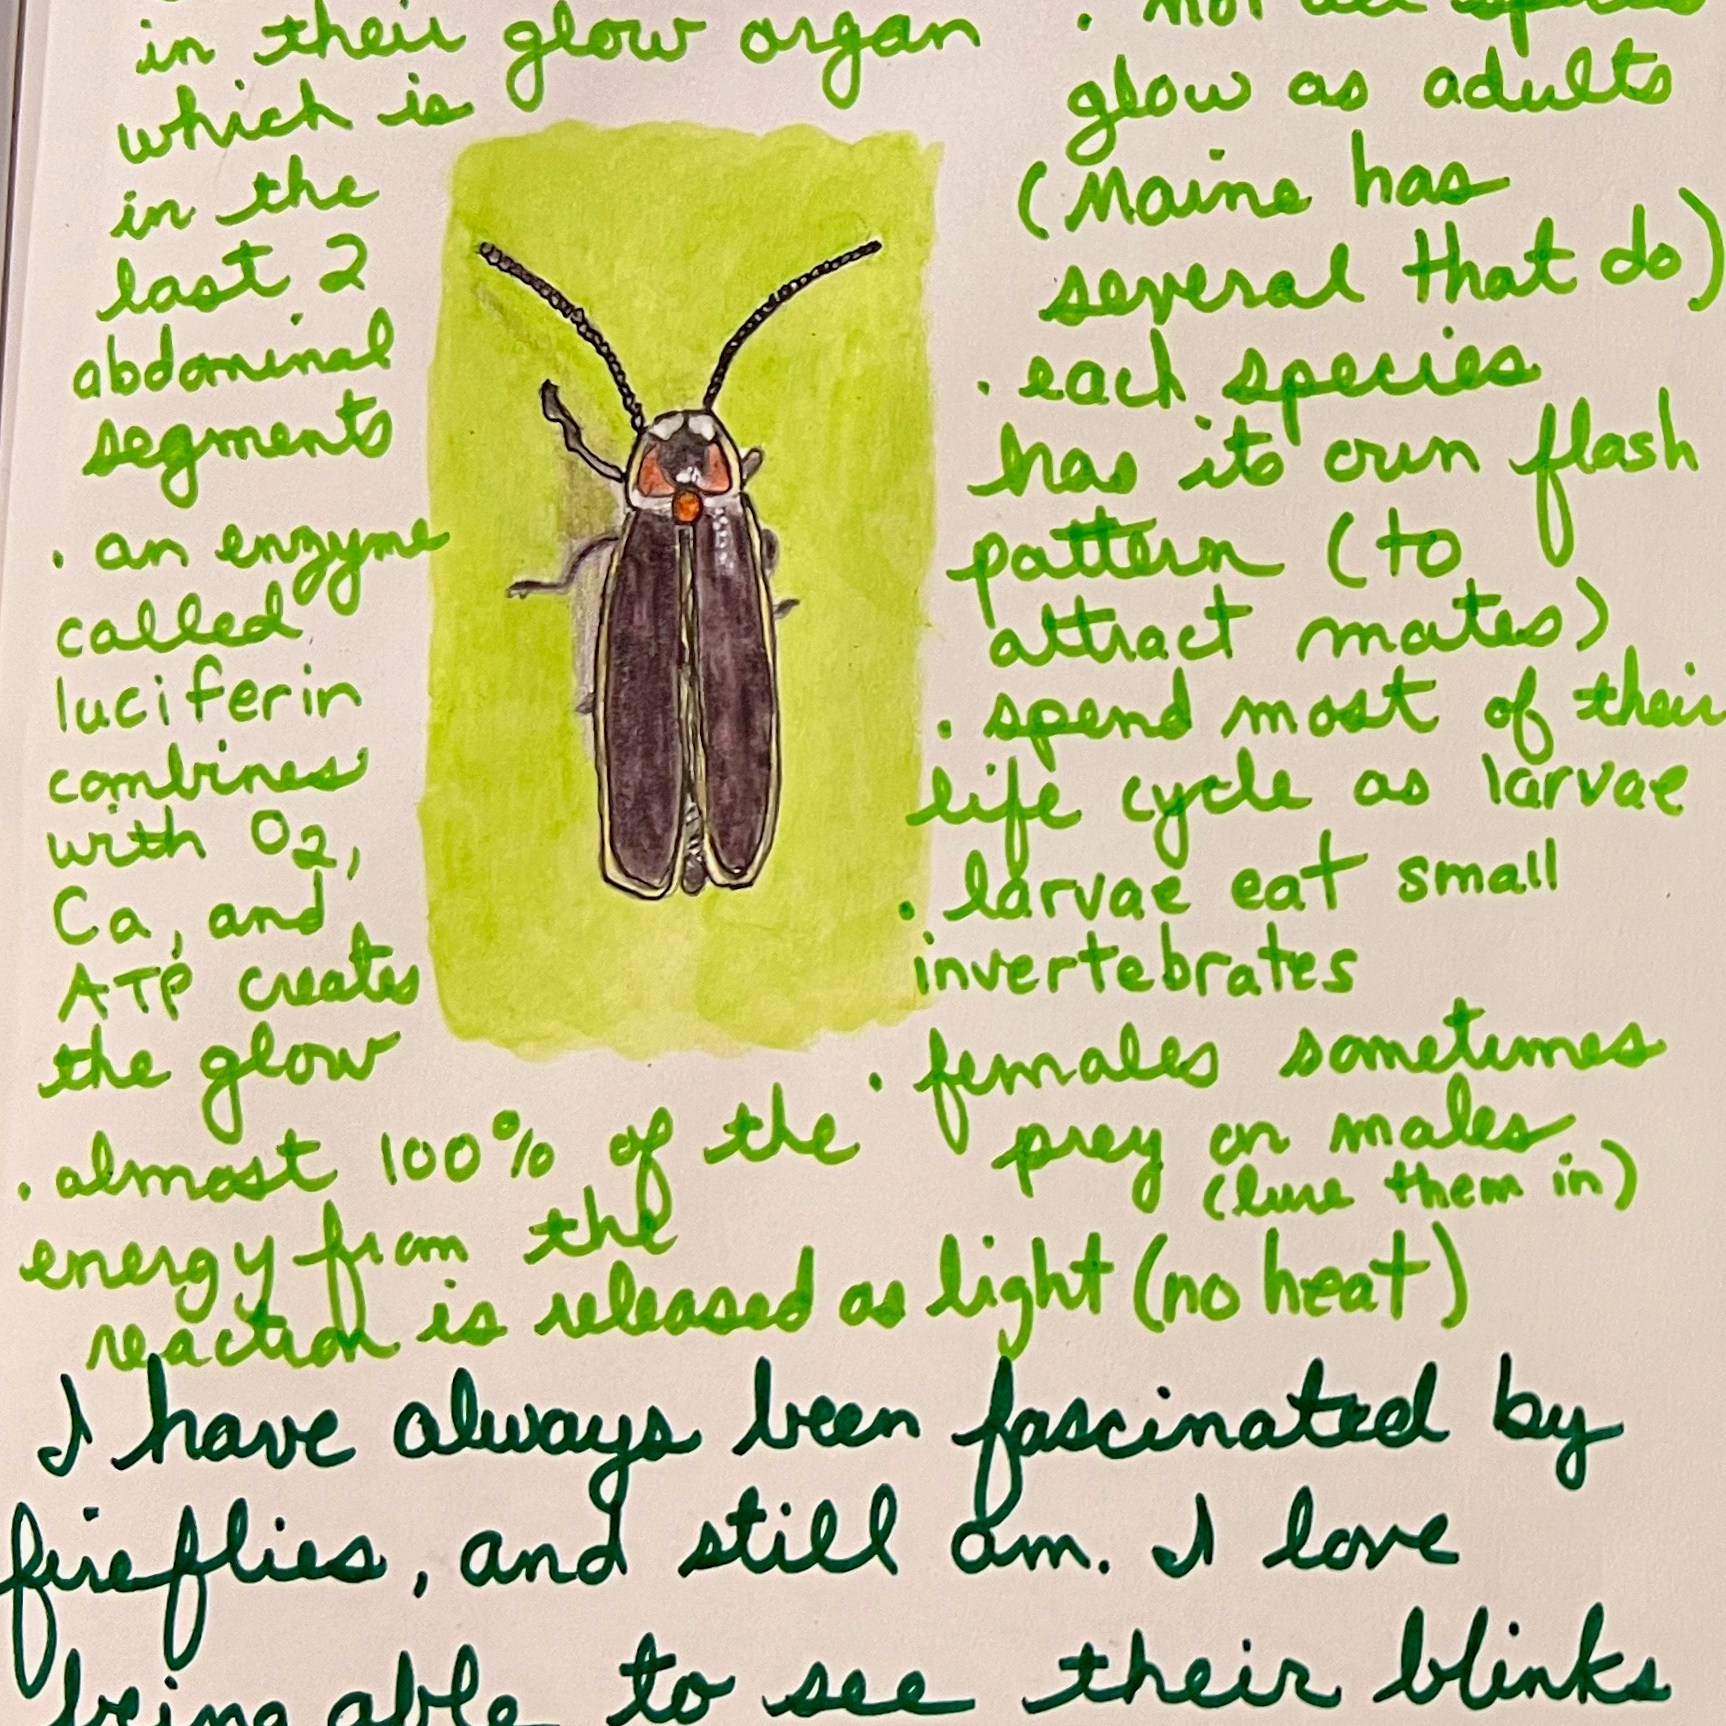 in their glow organ
which is
in the
last 2
abdominal
segments
. an enzyme
called
luciferin
combines
with O2,
Ca, and
ATP creates
the glow
. almost 100% of the
energy from the
reaction is released as light (no heat)
. not all species
glow as adults
(Maine has
several that do)
. each species
has its own flash
pattern (to
attract mates)
. spend most of their
life cycle as larvae
. larvae eat small
invertebrates
. females sometimes
prey on males
(lure them in)
I have always been fascinated by
fireflies, and still am. I love
being able to see their blinks